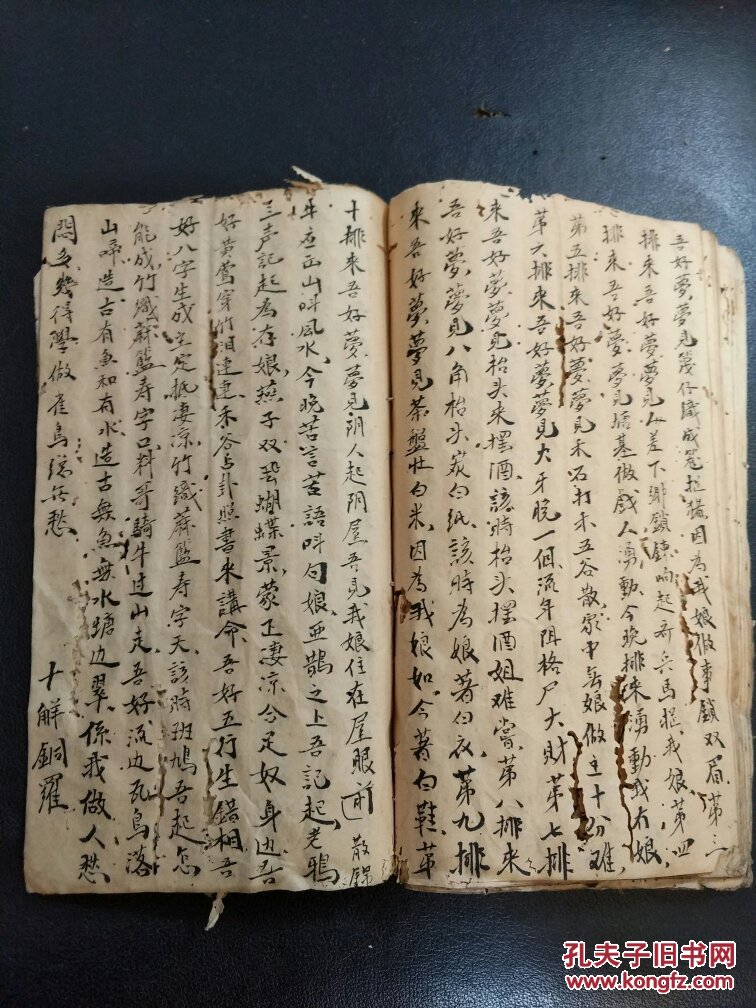 吾好夢夢見篾仔織成籠拦猪因為我娘做事鎖双眉第三
排來吾好夢夢見公差下鄉鎖鍊响起矛兵馬捉我娘第四
排來吾好夢夢見塘基做戲人湧動今晚排來湧動我冇娘
第五排來吾好夢夢見禾石打禾五谷散家中無娘做主十份难
第六排來吾好夢夢見大牙脫一個流年阻格尸大財第七排
來吾好夢夢見枱头來擺酒該時枱头擺酒姐难當第八排來
吾好夢夢見八角枱头炭白紙該時為娘著白衣第九排
來吾好夢夢見茶盤壯白米因為我娘如今著白鞋第
十排來吾好夢夢見阴人起阴屋吾見我娘住在屋眼前 散錦
年在正山呌風水今晚苦言苦語呌句娘亜鵲之上吾記起老鴉
三声記起為存娘燕子双飛蝴蝶景蒙正凄凉分足奴身边吾
好黄鶯穿竹泪連連禾谷占卦照書來講命吾好五行生錯相吾
好八字生成主定抵凄凉竹織蔴籃寿字天該時班鳩吾起怎
能成竹織蔴籃寿字口料哥騎牛过山走吾好流边瓦鳥落
山啼造古有魚和有水造古無魚無水塘边翠係我做人愁
悶多幾得學做雀鳥総冇愁
十解銅羅
孔夫子旧书网
www.kongfz.com